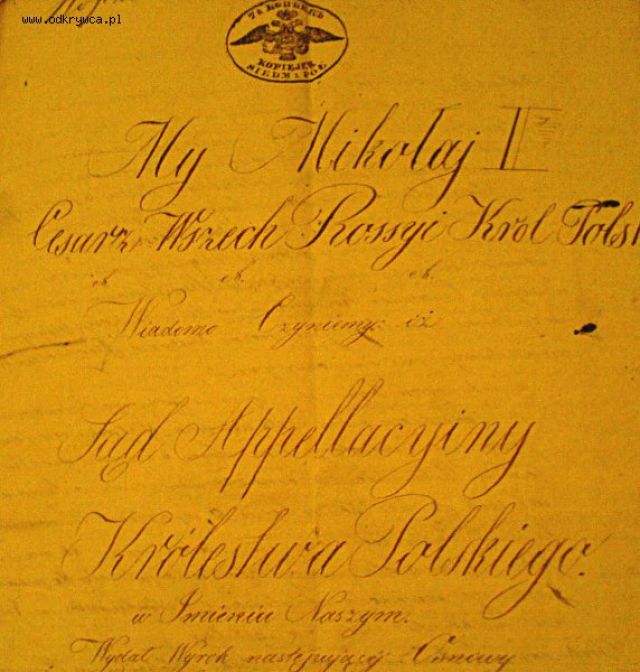 www.odkrywca.pl
7½ KOPIEJEK
KOPIEJEK
SIEDM I PÓŁ
My Mikołaj I
Cesarz Wszech Rossyi Król Polsk
etc. etc. etc.
Wiadomo Czyniemy: iż
Sąd Appellacyiny
Królestwa Polskiego.
w Imieniu Naszym.
Wydał Wyrok następującéj Osnowy